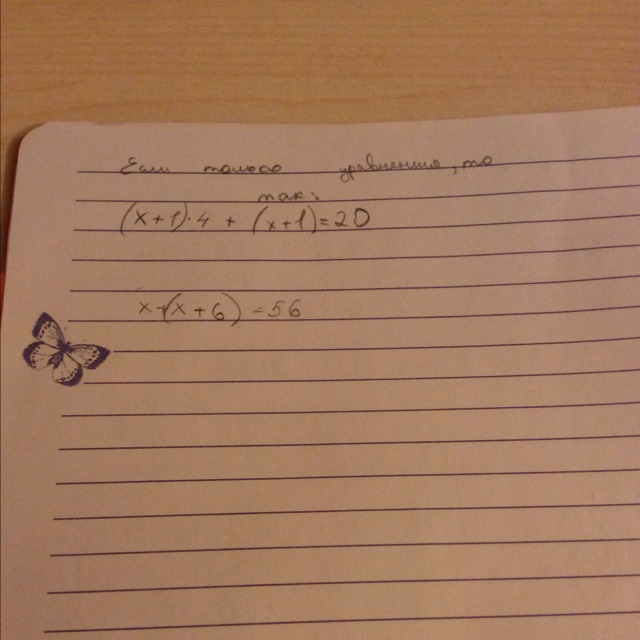 Если только уравнения, то
так:
(x+1)·4 + (x+1)=20
x+(x+6)=56